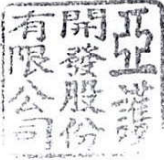 亞
開發股份
有限公司